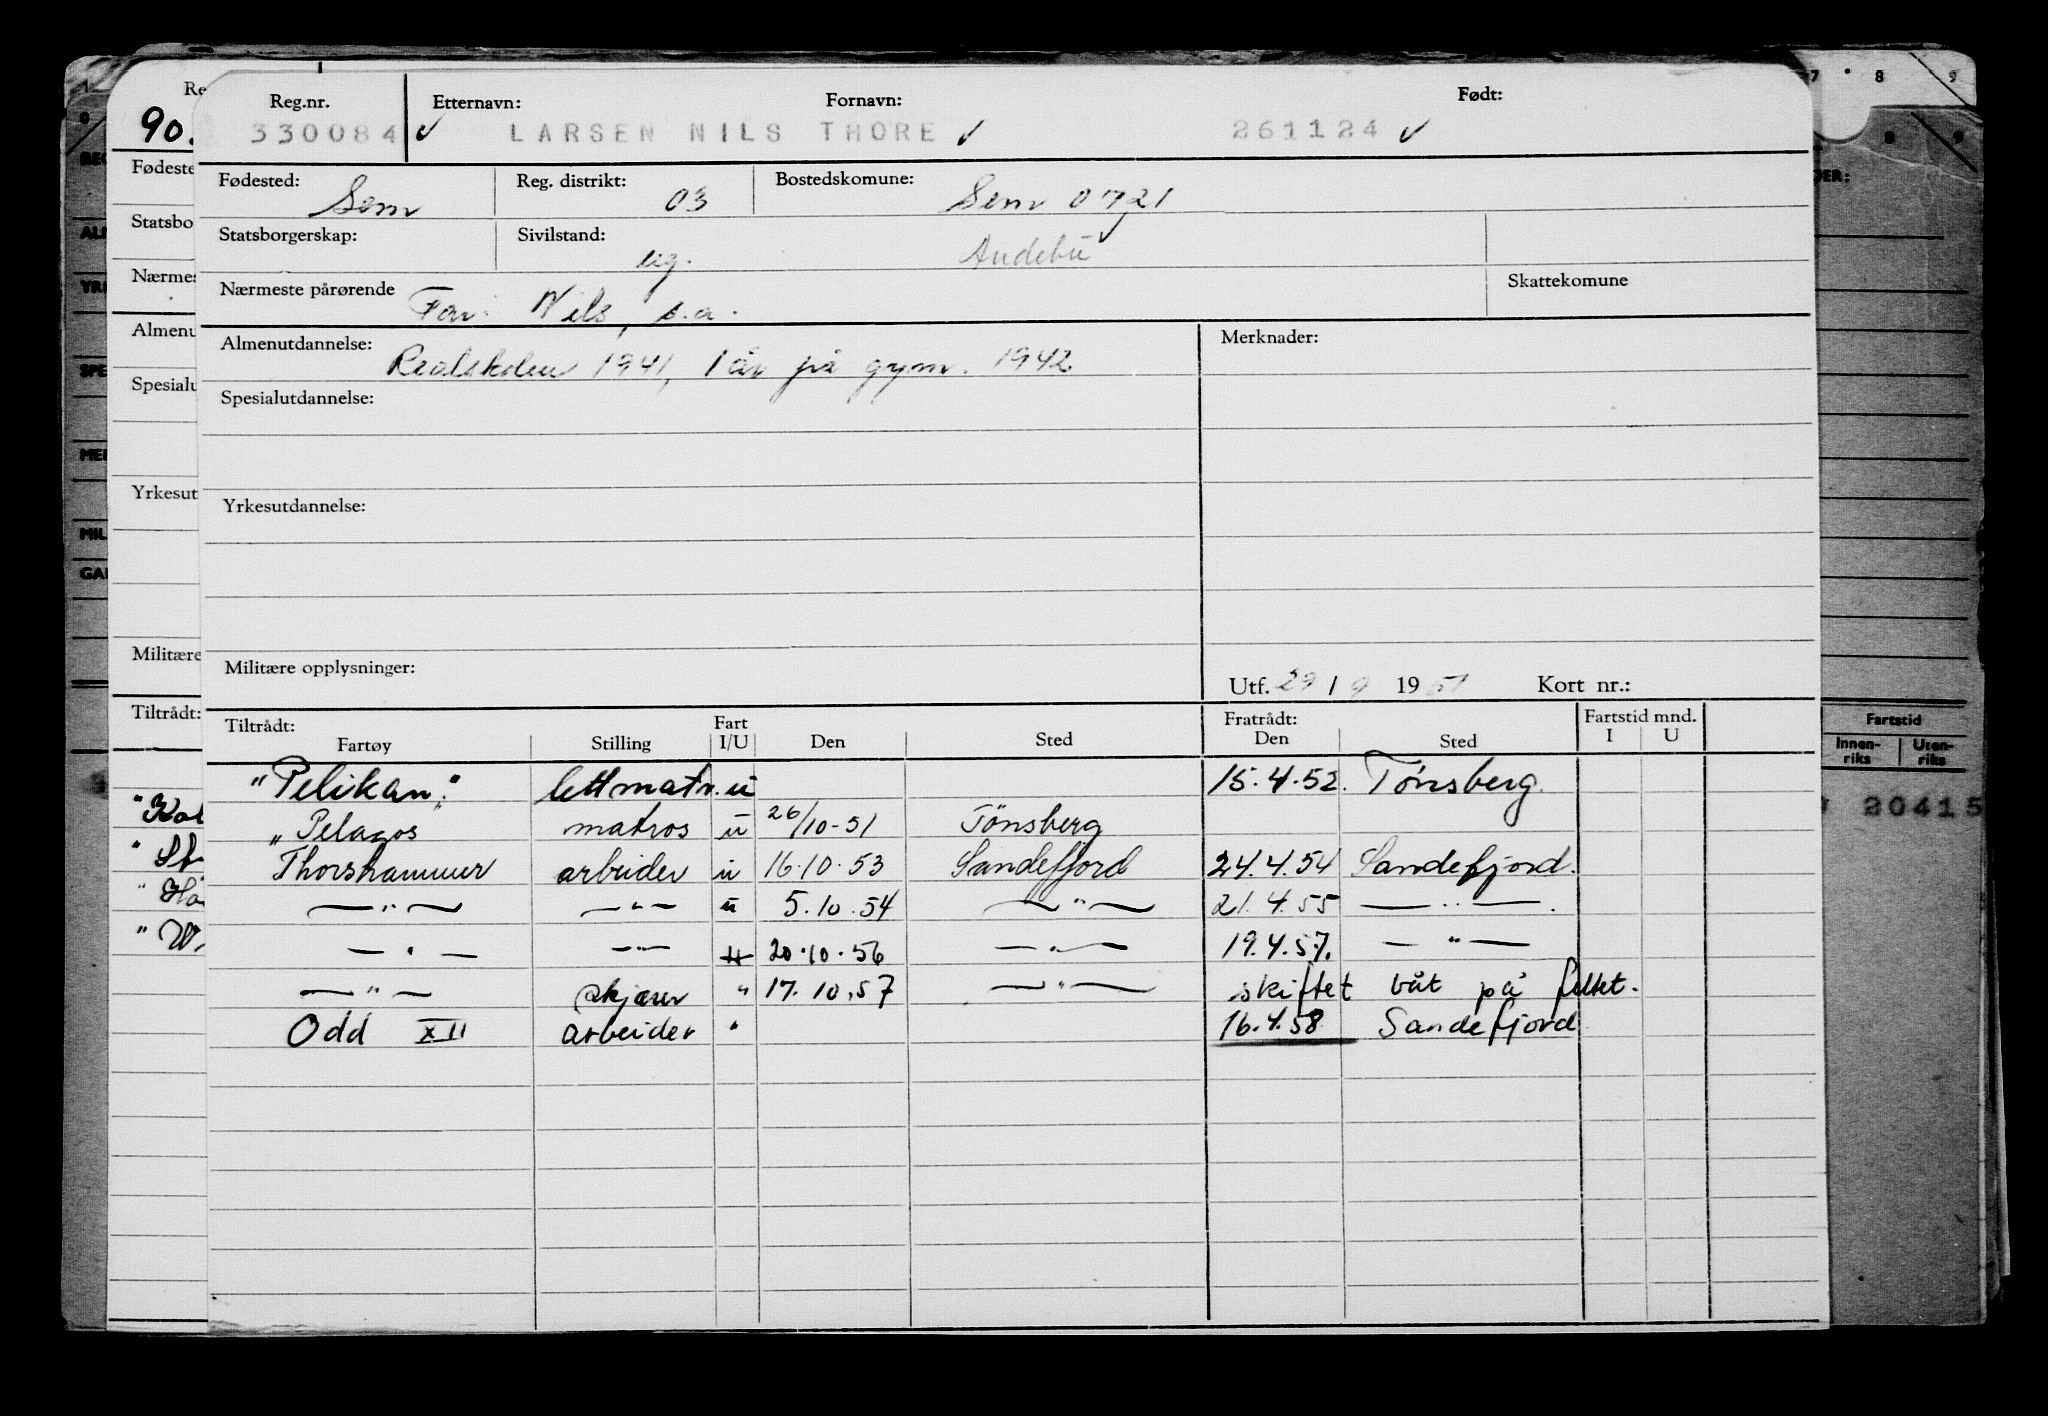 Reg.nr. Etternavn: Fornavn: Født:
90. 330084 ✓ LARSEN NILS THORE ✓ 261124 ✓
Fødested: Sem Reg. distrikt: 03 Bostedskomune: Sem 0721
Statsborgerskap: Sivilstand: ug. Andebu
Nærmeste pårørende Far: Nils, s.a. Skattekomune
Almenutdannelse: Realskolen 1941, 1 år på gym. 1942 Merknader:
Spesialutdannelse:
Yrkesutdannelse:
Militære opplysninger: Utf. 29/9 1951 Kort nr.:
Tiltrådt: Fart Fratrådt: Fartstid mnd.
Fartøy Stilling I/U Den Sted Den Sted I U
"Pelikan" lettmatr. u 15.4.52. Tønsberg.
"Pelagos" matros u 26/10-51 Tönsberg
Thorshammer arbeider u 16.10.53 Sandefjord 24.4.54 Sandefjord.
— " — — " — u 5.10.54 — " — 21.4.55 — " —.
— " — — " — u 20.10.56 — " — 19.4.57. — " —
— " — skjærer " 17.10.57 — " — skiftet båt på feltet.
Odd XII arbeider " 16.4.58 Sandefjord
7 8 9
8 9
DER:
Fartstid
Innen-riks Uten-riks
20415